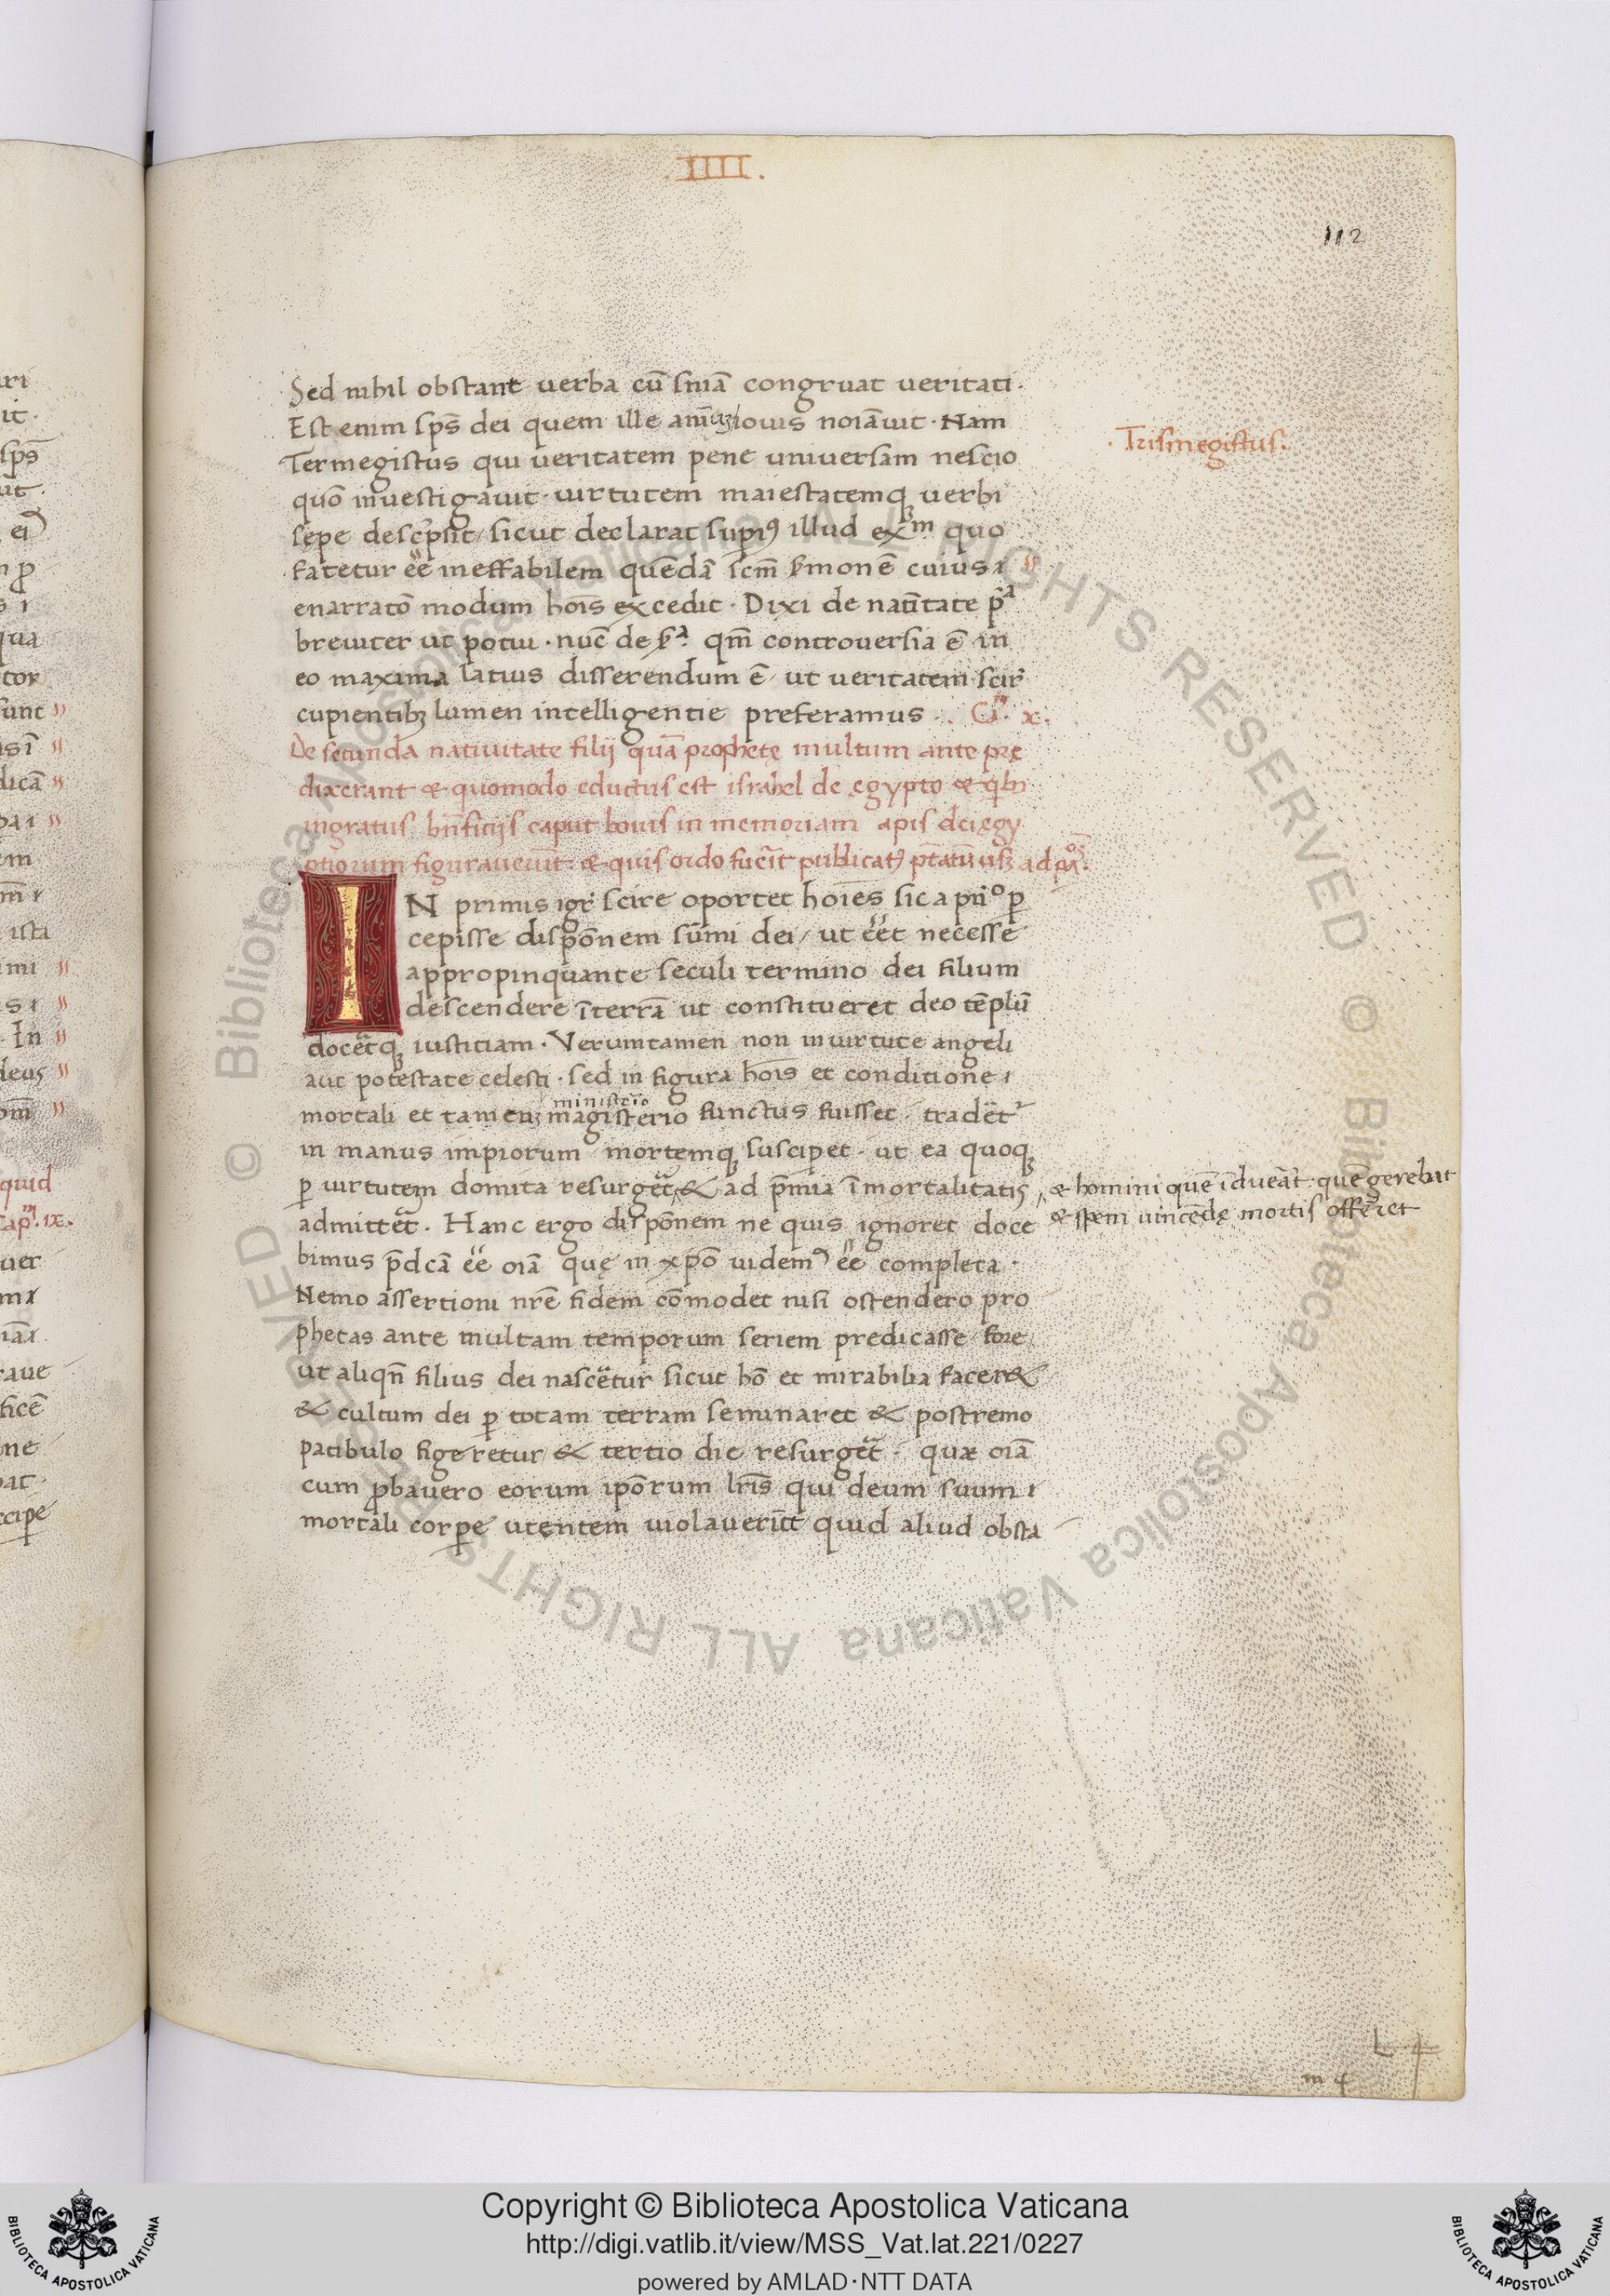 .IIII.
112
Sed nihil obstant uerba cū sniā congruat ueritati.
Est enim sps̄ dei quem ille aīuꝫ iouis noīauit. Nam
.Trismegistus.
Termegistus qui ueritatem pene uniuersam nescio
quō inuestigauit. uirtutem maiestatemqꝫ uerbi
sepe desc̓psit / sicut declarat supiꝰ illud exm quo
fatetur ēē ineffabilem quēdā scm̄ ẜmonē cuius
enarratō modum hoīs excedit. Dixi de natītate pᵃ
breuiter ut potui. nūc de ẜᵃ. qm̄ controuersia ē in
eo maxima latius disserendum ē ut ueritatem scir̄
cupientibꝫ lumen intelligentie preferamus. Cᵐ. x.
De secunda natiuitate filij quā prophetę multum ante prę
dixerant & quomodo eductus est israhel de ęgypto & qͥbi
ingratus bn̄ficijs caput bouis in memoriam apis dei ęgy
ptiorum figurauerūt. & quis ordo fuerit publicatꝰ
IN primis igr̄ scire oportet hoīes sic a pn̄ᵒ ꝑ
cepisse dispōnem sūmi dei / ut eēt necesse
appropinquante seculi termino dei filium
descendere ī terrā ut constitueret deo tēplū
docēt̄qꝫ iustitiam. Verumtamen non in uirtute angeli
aut potestate celesti. sed in figura hoīs et conditione
ministerio
mortali et tamen magisterio functus fuisset. tradēt̄
in manus impiorum mortemqꝫ susciperet. ut ea quoqꝫ
ꝑ uirtutem domita resurgēt̄ & ad p̄mia īmortalitatis
& homini quē īduēat̄. quē gerebat
& spem uincēdę mortis offerret
admittēt̄. Hanc ergo dispōnem ne quis ignoret doce
bimus p̄dcā ēē oīā quę in xp̄o uidemꝰ ēē completa.
Nemo assertioni nr̄e fidem cōmodet nisi ostendero pro
phetas ante multam temporum seriem predicasse fore
ut aliqn̄ filius dei nascētur sicut hō et mirabilia facer&
& cultum dei ꝑ totam terram seminaret & postremo
patibulo figeretur & tertio die resurgēt̄. quæ oīā
cum ꝓbauero eorum ipōrum lr̄is qui deum suum
mortali corpe utentem uiolauerūt quid aliud obsta
L 4
m 4
Copyright © Biblioteca Apostolica Vaticana
http://digi.vatlib.it/view/MSS_Vat.lat.221/0227
powered by AMLAD·NTT DATA